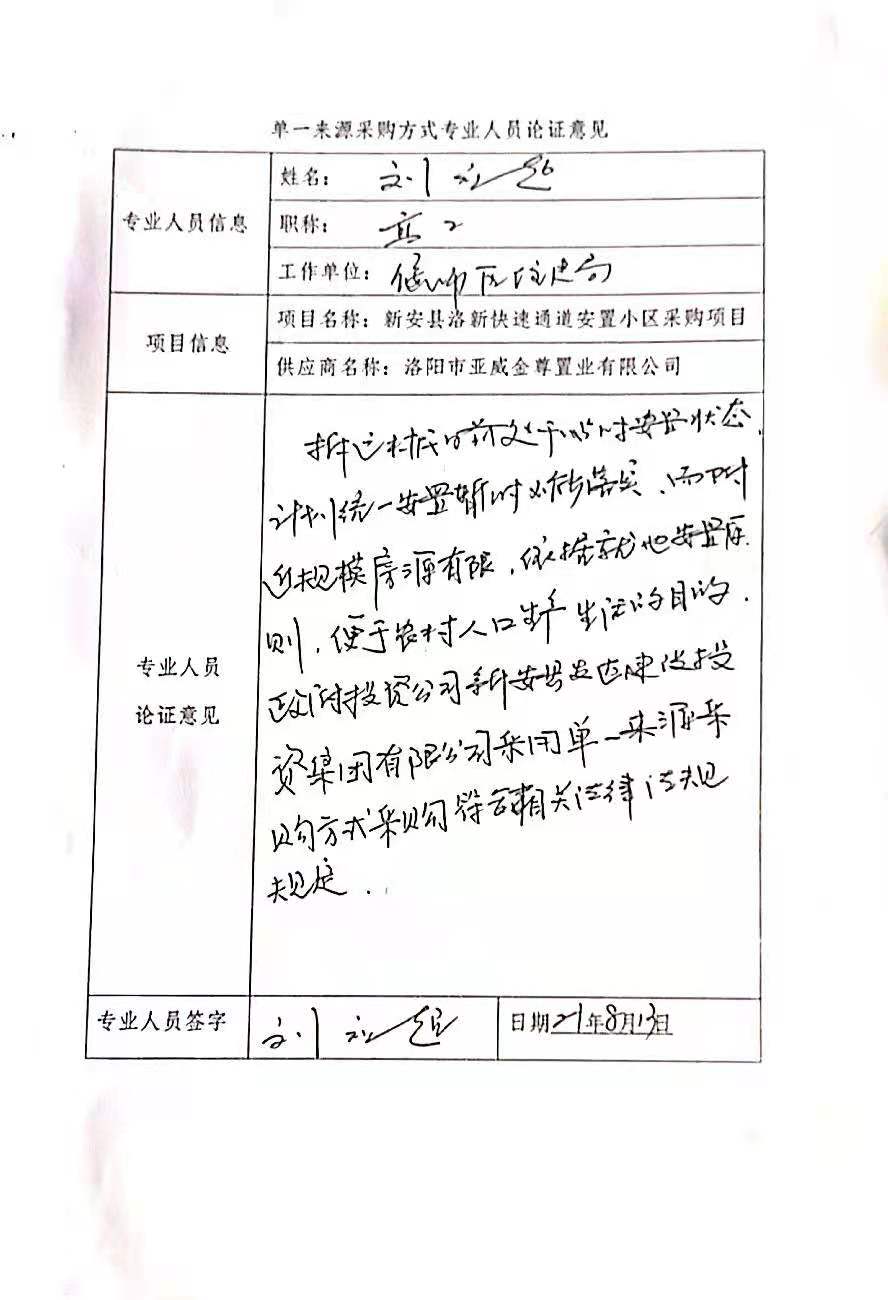 单一来源采购方式专业人员论证意见
专业人员信息
姓名：刘
职称：高工
工作单位：偃师区住建局
项目信息
项目名称：新安县洛新快速通道安置小区采购项目
供应商名称：洛阳市亚威金尊置业有限公司
专业人员
论证意见
拆迁村民目前处于临时安置状态，
计划统一安置暂时落实，而附
近规模房源有限，依据就地安置原
则，便于农村人口生产生活的目的，
政府投资公司新安县发达建设投
资集团有限公司采用单一来源采
购方式采购符合相关法律法规
规定．
专业人员签字
刘
日期21年8月13日